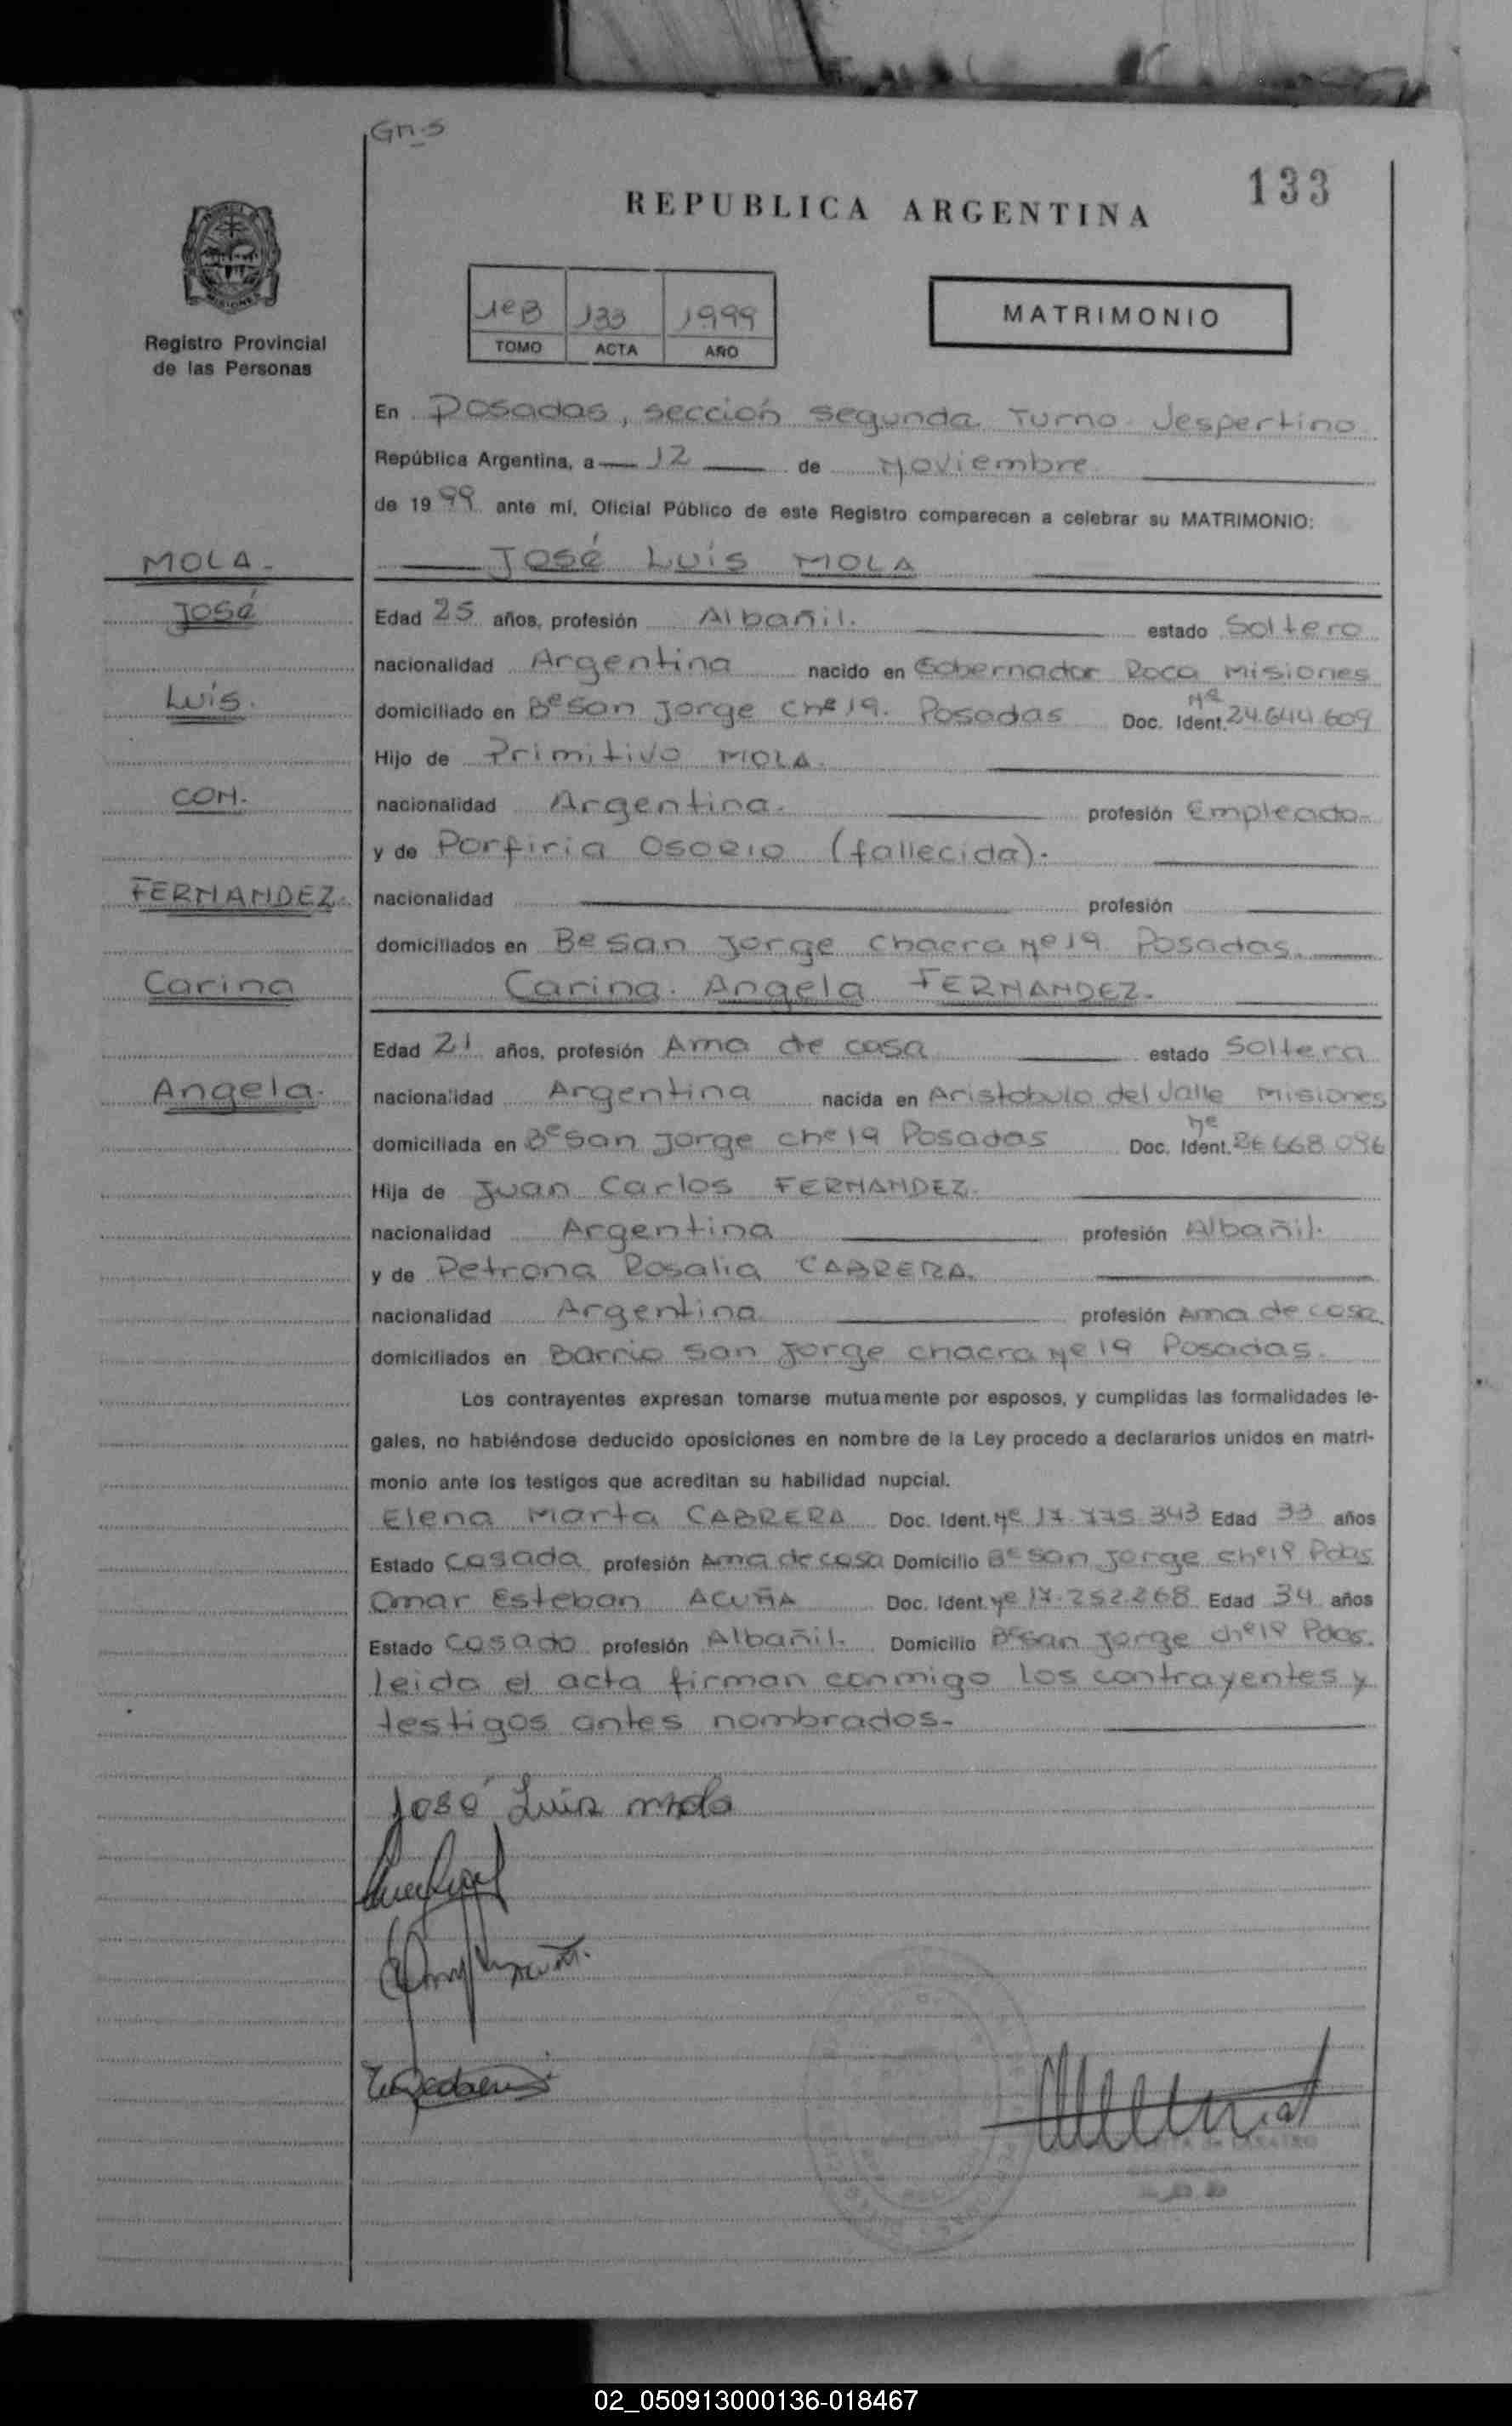 Gn-5
133
REPUBLICA ARGENTINA
1eB 133 1999
TOMO ACTA AÑO
MATRIMONIO
Registro Provincial
de las Personas
En Posadas, sección segunda Turno Vespertino
República Argentina, a 12 de Noviembre
de 1999 ante mí, Oficial Público de este Registro comparecen a celebrar su MATRIMONIO:
MOLA.
José Luis MOLA
José
Edad 25 años, profesión Albañil. estado Soltero
nacionalidad Argentina nacido en Gobernador Roca Misiones
Luis.
domiciliado en Bº San Jorge chº 19. Posadas Doc. Ident. Nº 24.644.609
Hijo de Primitivo MOLA.
CON.
nacionalidad Argentina. profesión Empleado
y de Porfiria OSORIO (fallecida).
FERNANDEZ.
nacionalidad profesión
domiciliados en Bº San Jorge chacra Nº 19 Posadas.
Carina
Carina Angela FERNANDEZ.
Edad 21 años, profesión Ama de casa estado Soltera
Angela.
nacionalidad Argentina nacida en Aristobulo del Valle Misiones
domiciliada en Bº San Jorge chº 19 Posadas Doc. Ident. Nº 26.668.096
Hija de Juan Carlos FERNANDEZ.
nacionalidad Argentina profesión Albañil.
y de Petrona Rosalia CABRERA.
nacionalidad Argentina profesión Ama de casa.
domiciliados en Barrio San Jorge chacra Nº 19 Posadas.
Los contrayentes expresan tomarse mutuamente por esposos, y cumplidas las formalidades le-
gales, no habiéndose deducido oposiciones en nombre de la Ley procedo a declararlos unidos en matri-
monio ante los testigos que acreditan su habilidad nupcial.
Elena Marta CABRERA Doc. Ident. Nº 17.775.343 Edad 33 años
Estado Casada profesión Ama de casa Domicilio Bº San Jorge chº 19 Pdas
Omar Esteban ACUÑA Doc. Ident. Nº 17.252.268 Edad 34 años
Estado Casado profesión Albañil. Domicilio Bº San Jorge chº 19 Pdas.
leido el acta firman conmigo los contrayentes y
testigos antes nombrados.
José Luis Mola
02_050913000136-018467